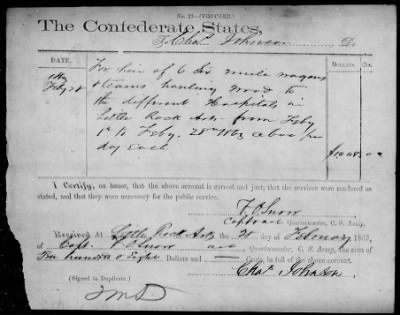 No. 22—(VOUCHER.)
The Confederate States,
To Chas. Johnson Dr.
DATE. DOLLARS Cts.
For hire of 6 Six mule wagons
Feby 28 & teams hauling wood to
the different Hospitals in
Little Rock Ark. from Feby
1st to Feby. 28th 1863
day each
I Certify, on honor, that the above account is correct and just; that the services were rendered as
stated, and that they were necessary for the public service.
Quartermaster, C. S. Army.
Received At Little Rock Ark the 28 day of February 1863,
of Capt. Quartermaster, C. S. Army, the sum of
Dollars and Cents, in full of the above account.
(Signed in Duplicate.) Chas. Johnson